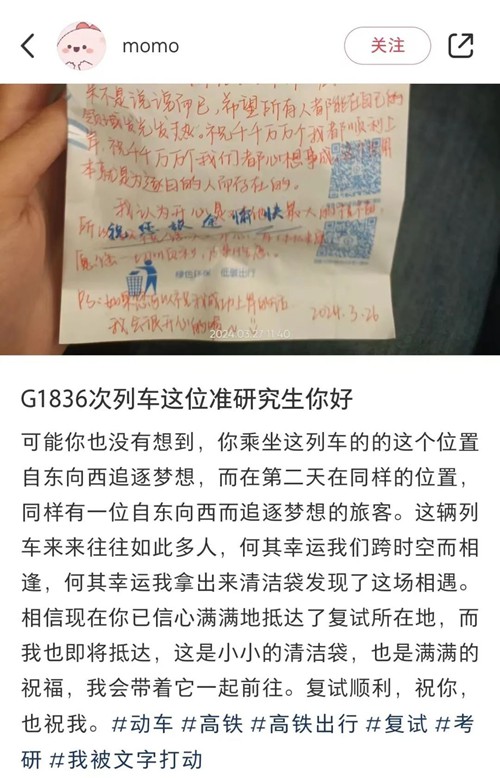 momo
关注
来不是说说而已,希望所有人都能在自己的
发光发热。祝千千万万个我都顺利上
岸,祝千千万万个我们都心想事成,
本就是为逐日的人而存在的。
我认为开心是
所以祝您旅途愉快
绿色环保 低碳出行
PS:如果您
我会很开心的
2024.3.26
G1836次列车这位准研究生你好
可能你也没有想到,你乘坐这列车的的这个位置
自东向西追逐梦想,而在第二天在同样的位置,
同样有一位自东向西而追逐梦想的旅客。这辆列
车来来往往如此多人,何其幸运我们跨时空而相
逢,何其幸运我拿出来清洁袋发现了这场相遇。
相信现在你已信心满满地抵达了复试所在地,而
我也即将抵达,这是小小的清洁袋,也是满满的
祝福,我会带着它一起前往。复试顺利,祝你,
也祝我。#动车 #高铁 #高铁出行 #复试 #考
研 #我被文字打动